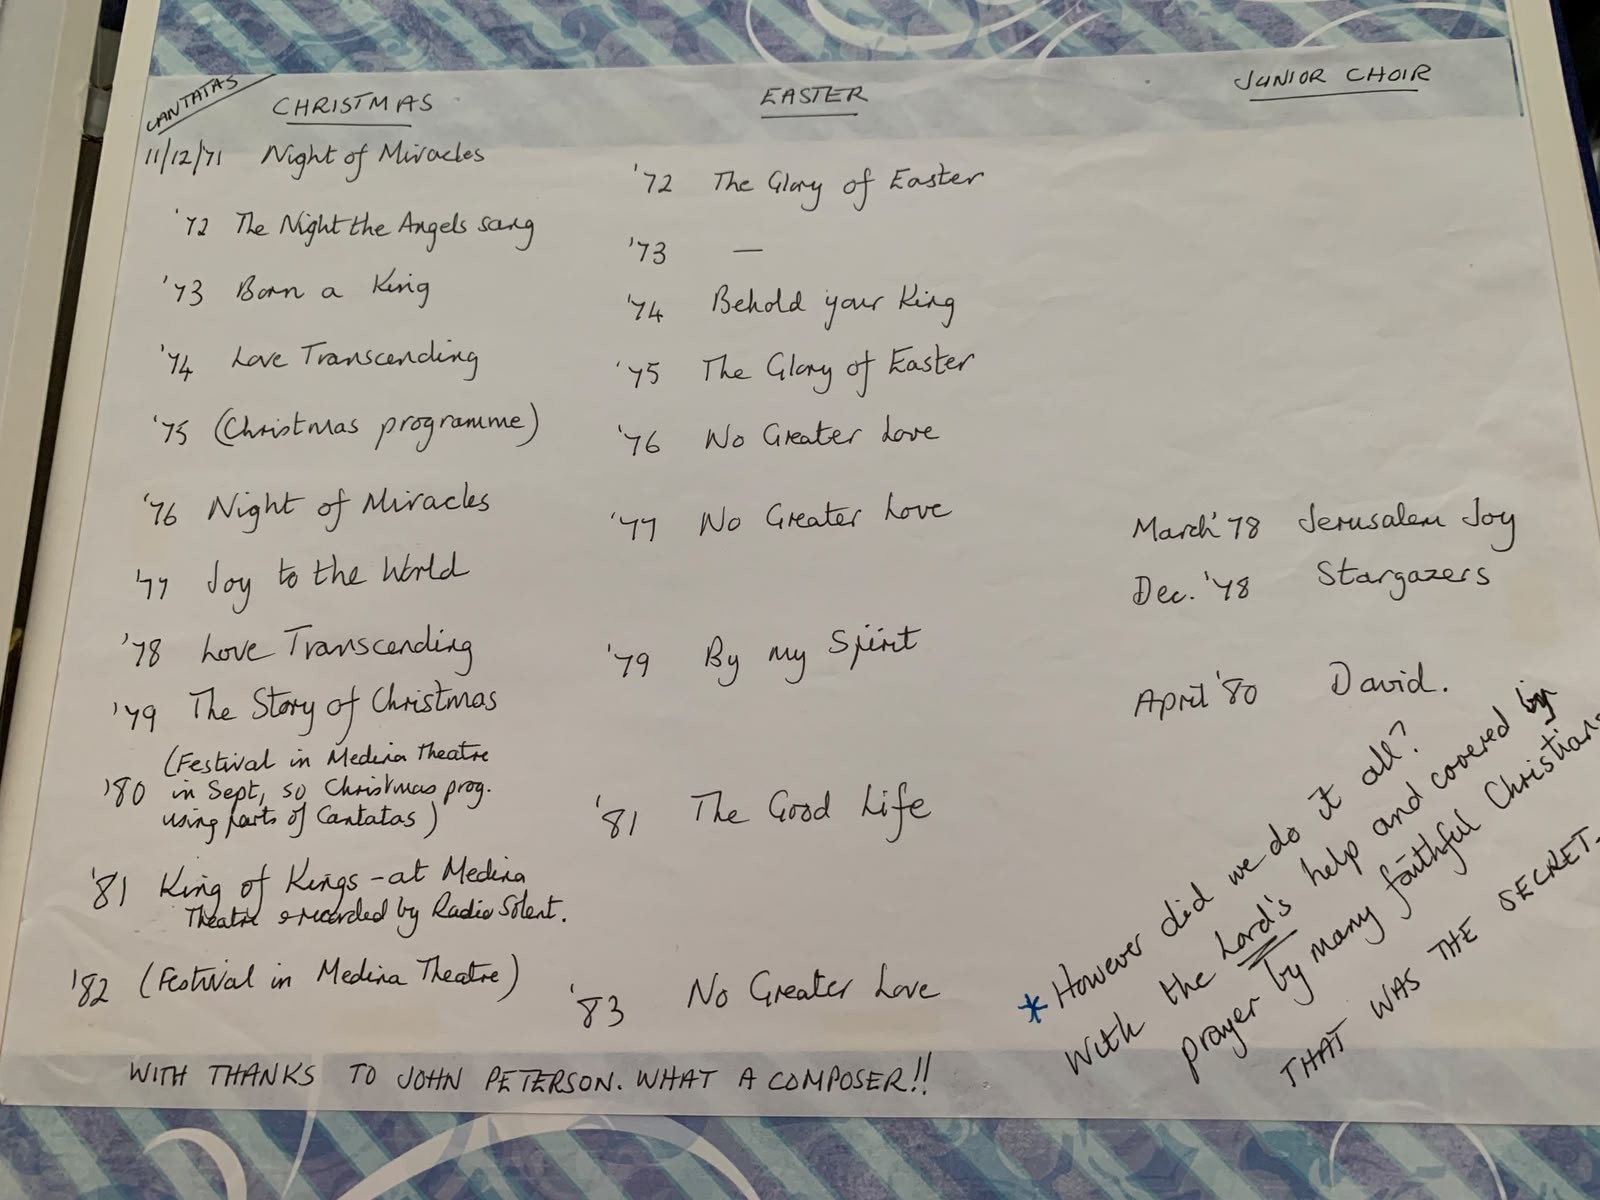 CANTATAS
CHRISTMAS
11/12/71 Night of Miracles
'72 The Night the Angels sang
'73 Born a King
'74 Love Transcending
'75 (Christmas programme)
'76 Night of Miracles
'77 Joy to the World
'78 Love Transcending
'79 The Story of Christmas
(Festival in Medina Theatre
'80 in Sept, so Christmas prog.
using parts of Cantatas)
'81 King of Kings - at Medina
Theatre & recorded by Radio Solent.
'82 (Festival in Medina Theatre)
EASTER
'72 The Glory of Easter
'73 —
'74 Behold your King
'75 The Glory of Easter
'76 No Greater Love
'77 No Greater Love
'79 By my Spirit
'81 The Good Life
'83 No Greater Love
JUNIOR CHOIR
March '78 Jerusalem Joy
Dec. '78 Stargazers
April '80 David.
* However did we do it all?
With the Lord's help and covered in
prayer by many faithful Christians
THAT WAS THE SECRET.
WITH THANKS TO JOHN PETERSON. WHAT A COMPOSER!!